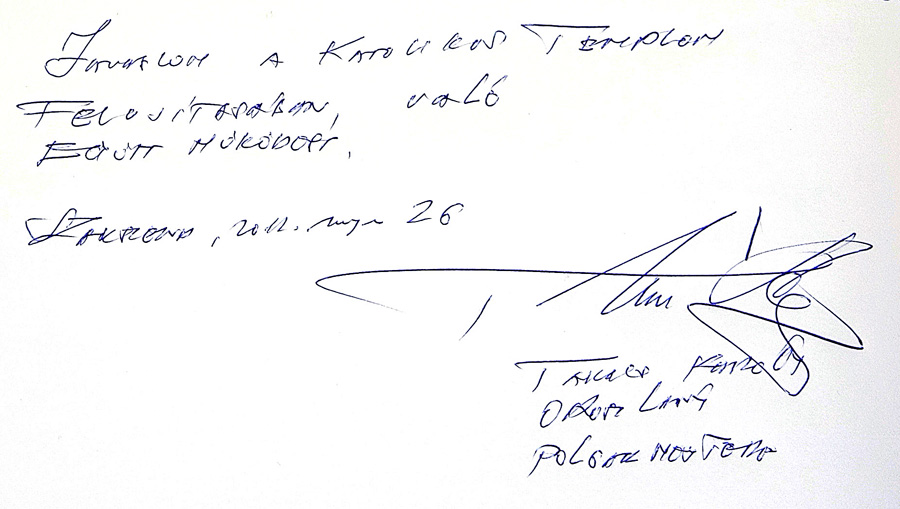 Javaslom a Katolikus Templom
Felújításában, való
Együtt működést,
2011. május 26
Takács Károly
Polgármestere